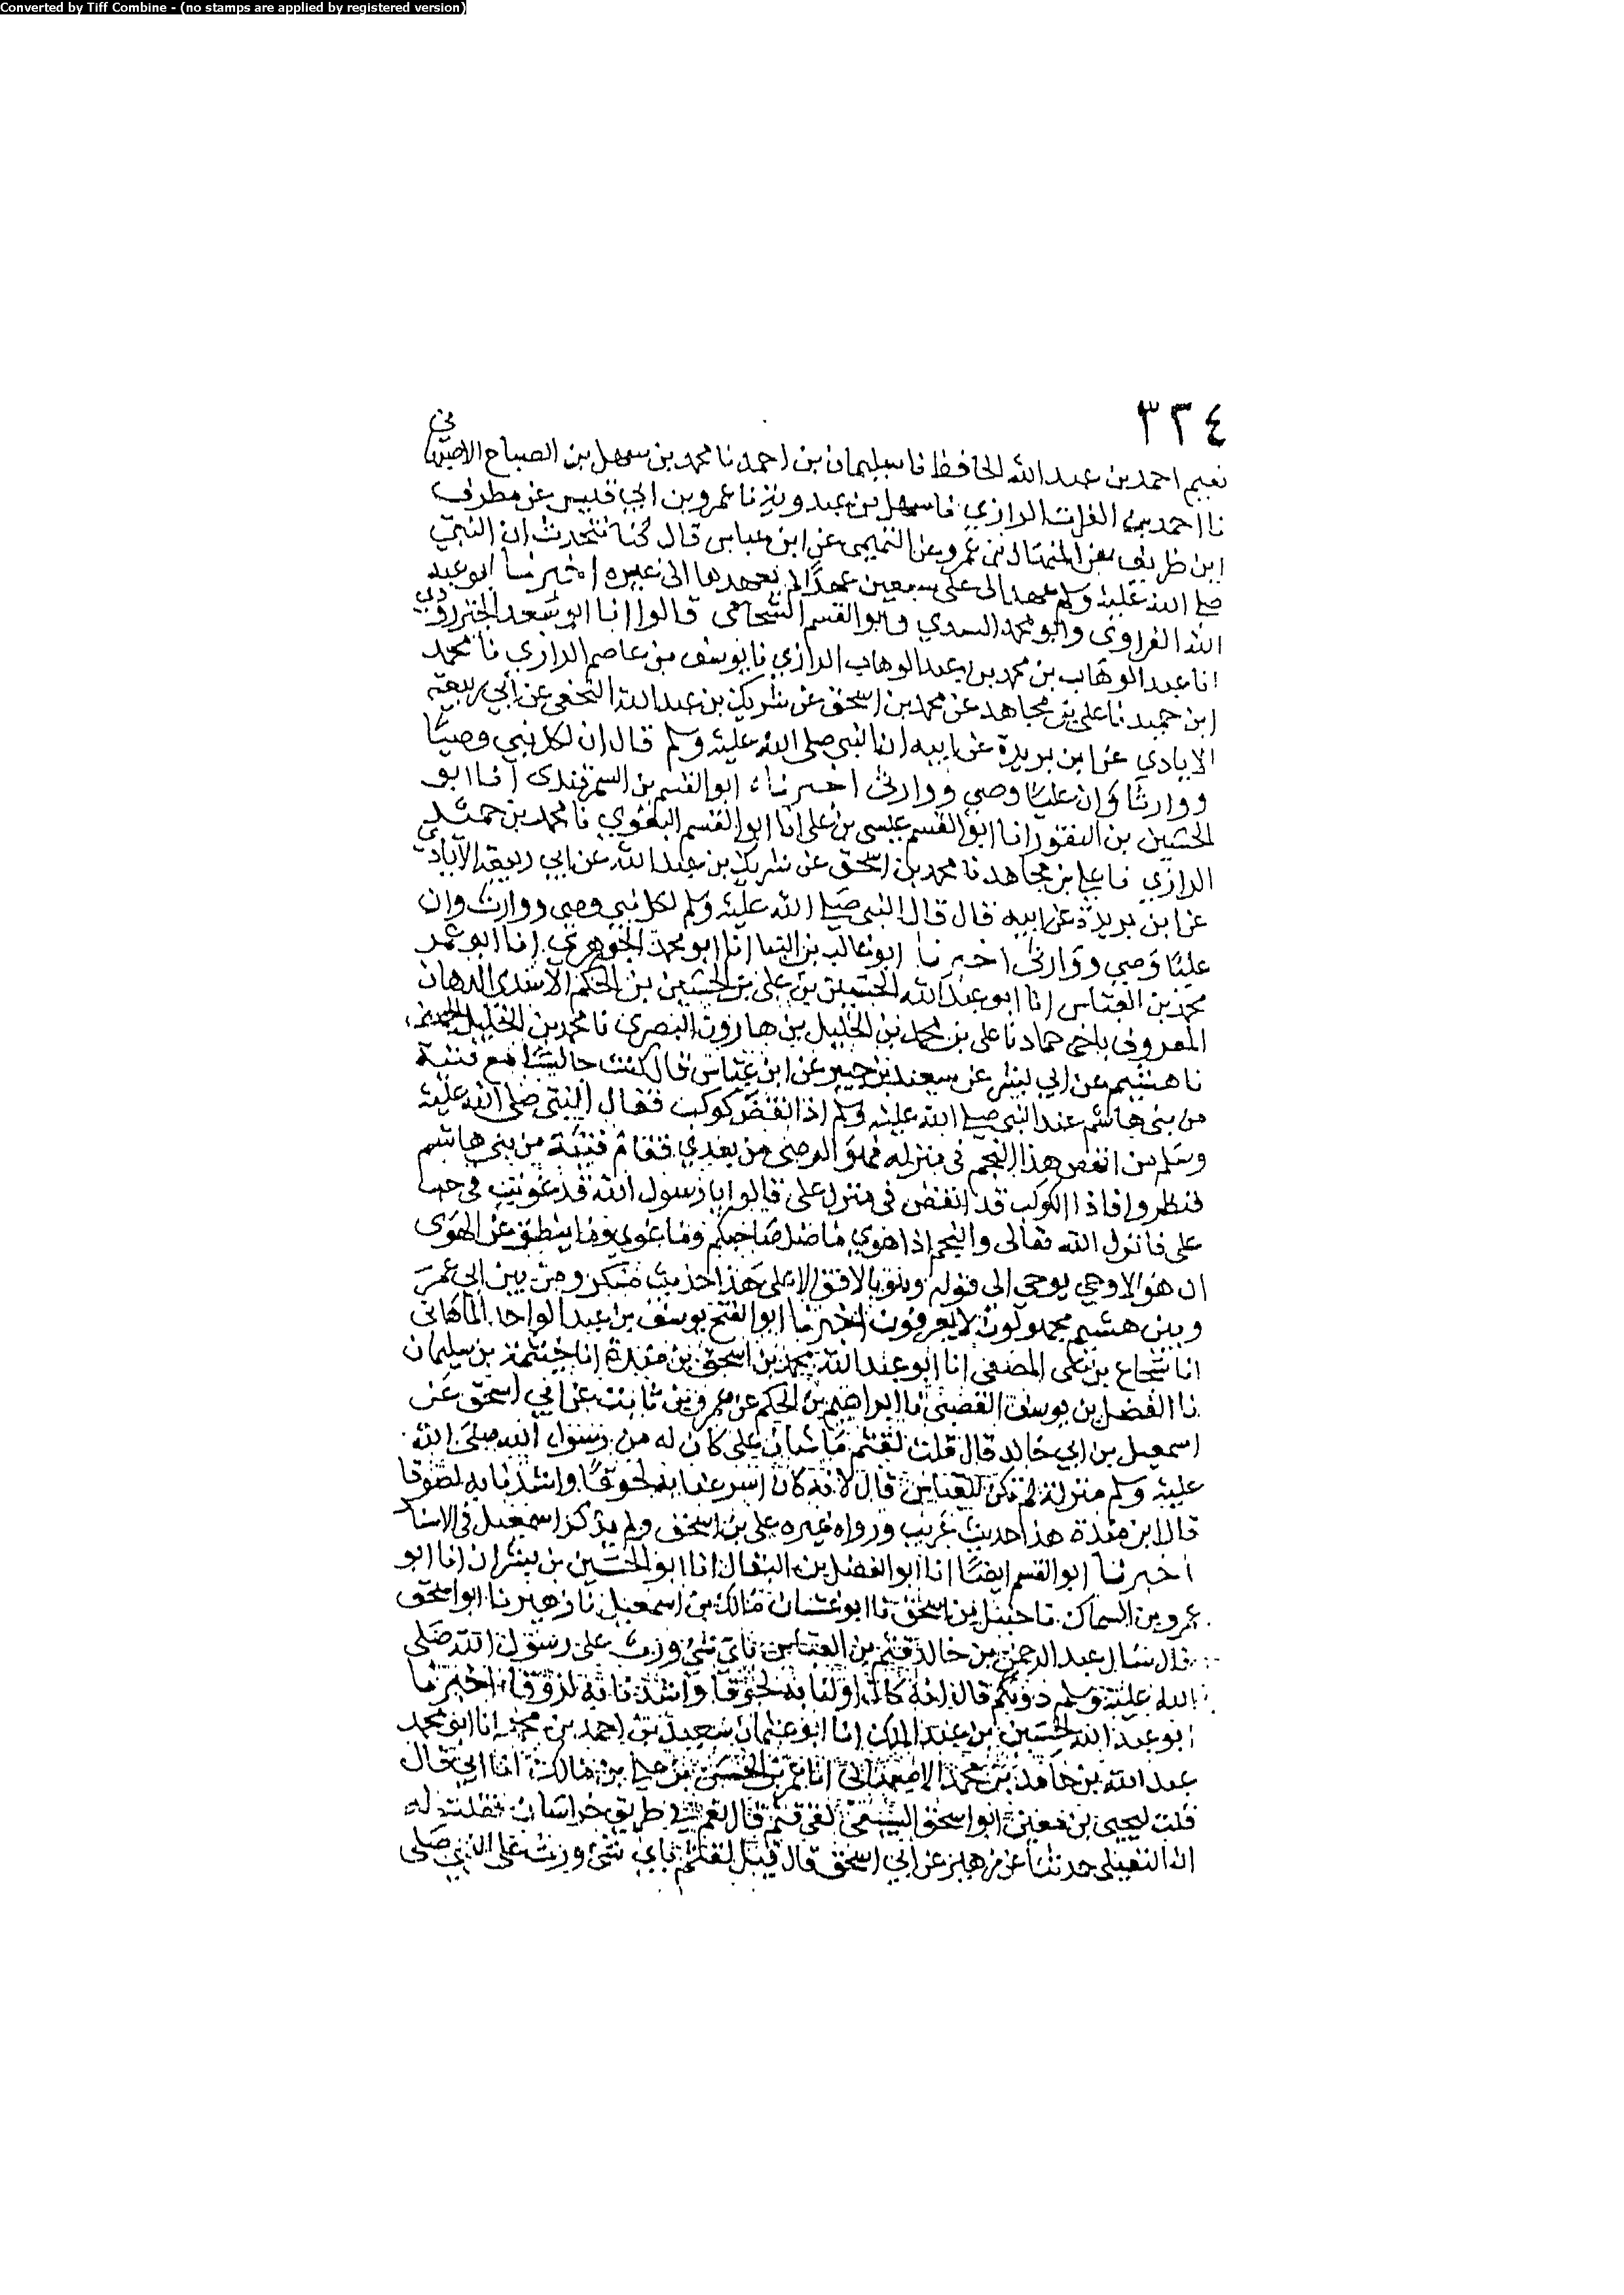 Converted by Tiff Combine - (no stamps are applied by registered version)
٣٣٤
نعيم احمد بن عبد الله الحافظ نا سليمان بن احمد نا محمد بن سهل بن الصباح الاصبهاني
نا احمد بن الفرات الرازي نا سهل بن عبدويه نا عمرو بن ابي قيس عن مطرف
ابن طريف عن المنهال بن عمرو عن التميمي عن ابن عباس قال كنا نتحدث ان النبي
صلى الله عليه وسلم عهد الى علي سبعين عهدا لم يعهدها الى غيره اخبرنا ابو عبد
الله الفراوي وابو محمد السدي وابو القسم الشحامي قالوا انا ابو سعد الجنزرودي
انا عبد الوهاب بن محمد بن عبد الوهاب الرازي نا يوسف بن عاصم الرازي نا محمد
ابن حميد نا علي بن مجاهد عن محمد بن اسحق عن شريك بن عبد الله النخعي عن ابي ربيعة
الايادي عن ابن بريدة عن ابيه ان النبي صلى الله عليه وسلم قال ان لكل نبي وصيا
ووارثا وان عليا وصيي ووارثي اخبرنا ابو القسم بن السمرقندي انا ابو
الحسين بن النقور انا ابو القسم عيسى بن علي انا ابو القسم البغوي نا محمد بن حميد
الرازي نا علي بن مجاهد نا محمد بن اسحق عن شريك بن عبد الله عن ابي ربيعة الايادي
عن ابن بريدة عن ابيه قال قال النبي صلى الله عليه وسلم لكل نبي وصي ووارث وان
عليا وصيي ووارثي اخبرنا ابو غالب بن البنا انا ابو محمد الجوهري انا ابو عمر
محمد بن العباس انا ابو عبد الله الحسين بن علي بن الحسين بن الحكم الاسدي الدهان
المعروف باخي حماد نا علي بن محمد بن الخليل بن هارون البصري نا محمد بن الخليل الجهني
نا هشيم عن ابي بشر عن سعيد بن جبير عن ابن عباس قال كنت جالسا مع فتية
من بني هاشم عند النبي صلى الله عليه وسلم اذ انقض كوكب فقال النبي صلى الله عليه
وسلم من انقض هذا النجم في منزله فهو الوصي من بعدي فقام فتية من بني هاشم
فنظروا فاذا الكوكب قد انقض في منزل علي قالوا يا رسول الله قد غويت في حب
علي فانزل الله تعالى والنجم اذا هوى ما ضل صاحبكم وما غوى وما ينطق عن الهوى
ان هو الا وحي يوحى الى قوله وهو بالافق الاعلى هذا حديث منكر ومن بين ابي عمر
وبين هشيم مجهولون لا يعرفون اخبرنا ابو الفتح يوسف بن عبد الواحد الماهاني
انا شجاع بن علي المصقلي انا ابو عبد الله محمد بن اسحق بن مندة انا خيثمة بن سليمان
نا الفضل بن يوسف القصبي نا ابراهيم بن الحكم عن عمرو بن ثابت عن ابي اسحق عن
اسمعيل بن ابي خالد قال قلت لقثم ما شان علي كان له من رسول الله صلى الله
عليه وسلم منزلة لم تكن للعباس قال لانه كان اسرعنا به لحوقا واشدنا به لصوقا
قال ابن مندة هذا حديث غريب ورواه غيره علي بن اسحق ولم يذكر اسمعيل في الاسناد
اخبرنا ابو القسم ايضا انا ابو الفضل بن البقال انا ابو الحسين بن بشران انا ابو
عمرو بن السماك نا حنبل بن اسحق نا ابو غسان مالك بن اسمعيل نا زهير نا ابو اسحق
قال سال عبد الرحمن بن خالد قثم بن العباس باي شي ورث علي رسول الله صلى
الله عليه وسلم دونكم قال انه كان اولنا به لحوقا واشدنا به لزوقا اخبرنا
ابو عبد الله الحسين بن عبد الملك انا ابو عثمان سعيد بن احمد بن محمد انا ابو محمد
عبد الله بن حامد بن محمد الاصبهاني انا عمر بن الحسن بن علي بن مالك انا ابي قال
قلت ليحيى بن معين ابو اسحق السبيعي لقي قثم قال نعم في طريق خراسان فقلت له
ان النفيلي حدثنا عن زهير عن ابي اسحق قال قيل لقثم باي شي ورث علي النبي صلى